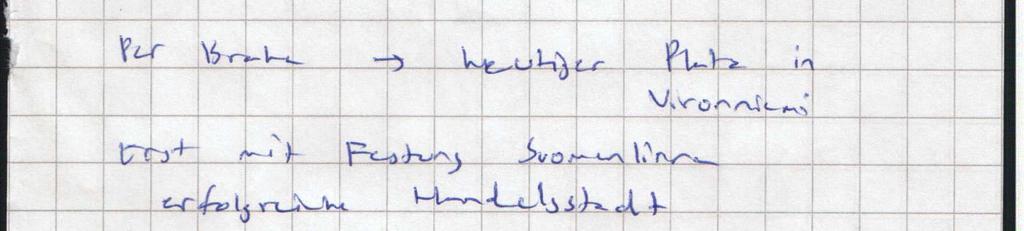 Per Brahe → heutiger Platz in
Vironniemi
Erst mit Festung Suomenlinna
erfolgreiche Handelsstadt